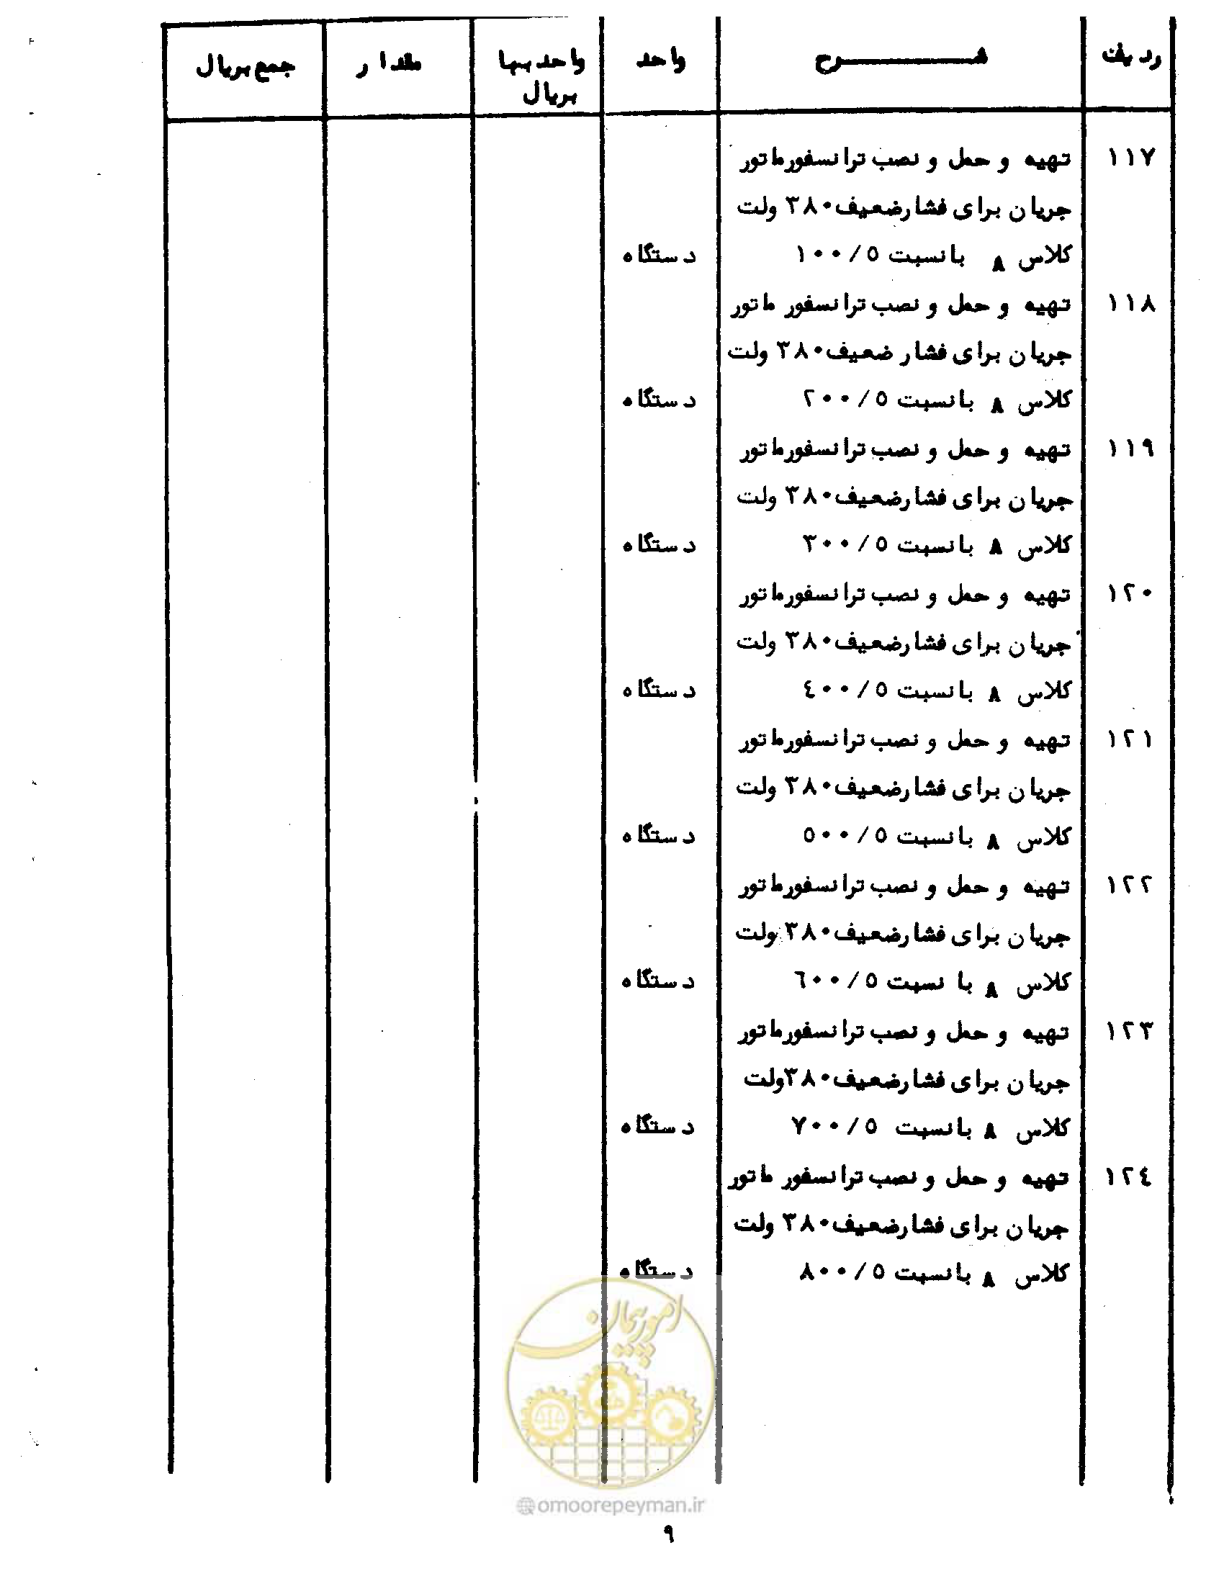 ردیف شرح واحد واحد بهـا مقدار جمع بریال
بریال
۱۱۷ تهیه و حمل و نصب ترانسفورماتور
جریان برای فشارضعیف ۳۸۰ ولت
کلاس ۸ بانسبت ۱۰۰/۵ دستگاه
۱۱۸ تهیه و حمل و نصب ترانسفورماتور
جریان برای فشار ضعیف ۳۸۰ ولت
کلاس ۸ بانسبت ۲۰۰/۵ دستگاه
۱۱۹ تهیه و حمل و نصب ترانسفورماتور
جریان برای فشارضعیف ۳۸۰ ولت
کلاس ۸ بانسبت ۳۰۰/۵ دستگاه
۱۲۰ تهیه و حمل و نصب ترانسفورماتور
جریان برای فشارضعیف ۳۸۰ ولت
کلاس ۸ بانسبت ۴۰۰/۵ دستگاه
۱۲۱ تهیه و حمل و نصب ترانسفورماتور
جریان برای فشارضعیف ۳۸۰ ولت
کلاس ۸ بانسبت ۵۰۰/۵ دستگاه
۱۲۲ تهیه و حمل و نصب ترانسفورماتور
جریان برای فشارضعیف ۳۸۰ ولت
کلاس ۸ با نسبت ۶۰۰/۵ دستگاه
۱۲۳ تهیه و حمل و نصب ترانسفورماتور
جریان برای فشارضعیف ۳۸۰ ولت
کلاس ۸ بانسبت ۷۰۰/۵ دستگاه
۱۲۴ تهیه و حمل و نصب ترانسفورماتور
جریان برای فشارضعیف ۳۸۰ ولت
کلاس ۸ بانسبت ۸۰۰/۵ دستگاه
امور پیمان
@omoorepeyman.ir
۹